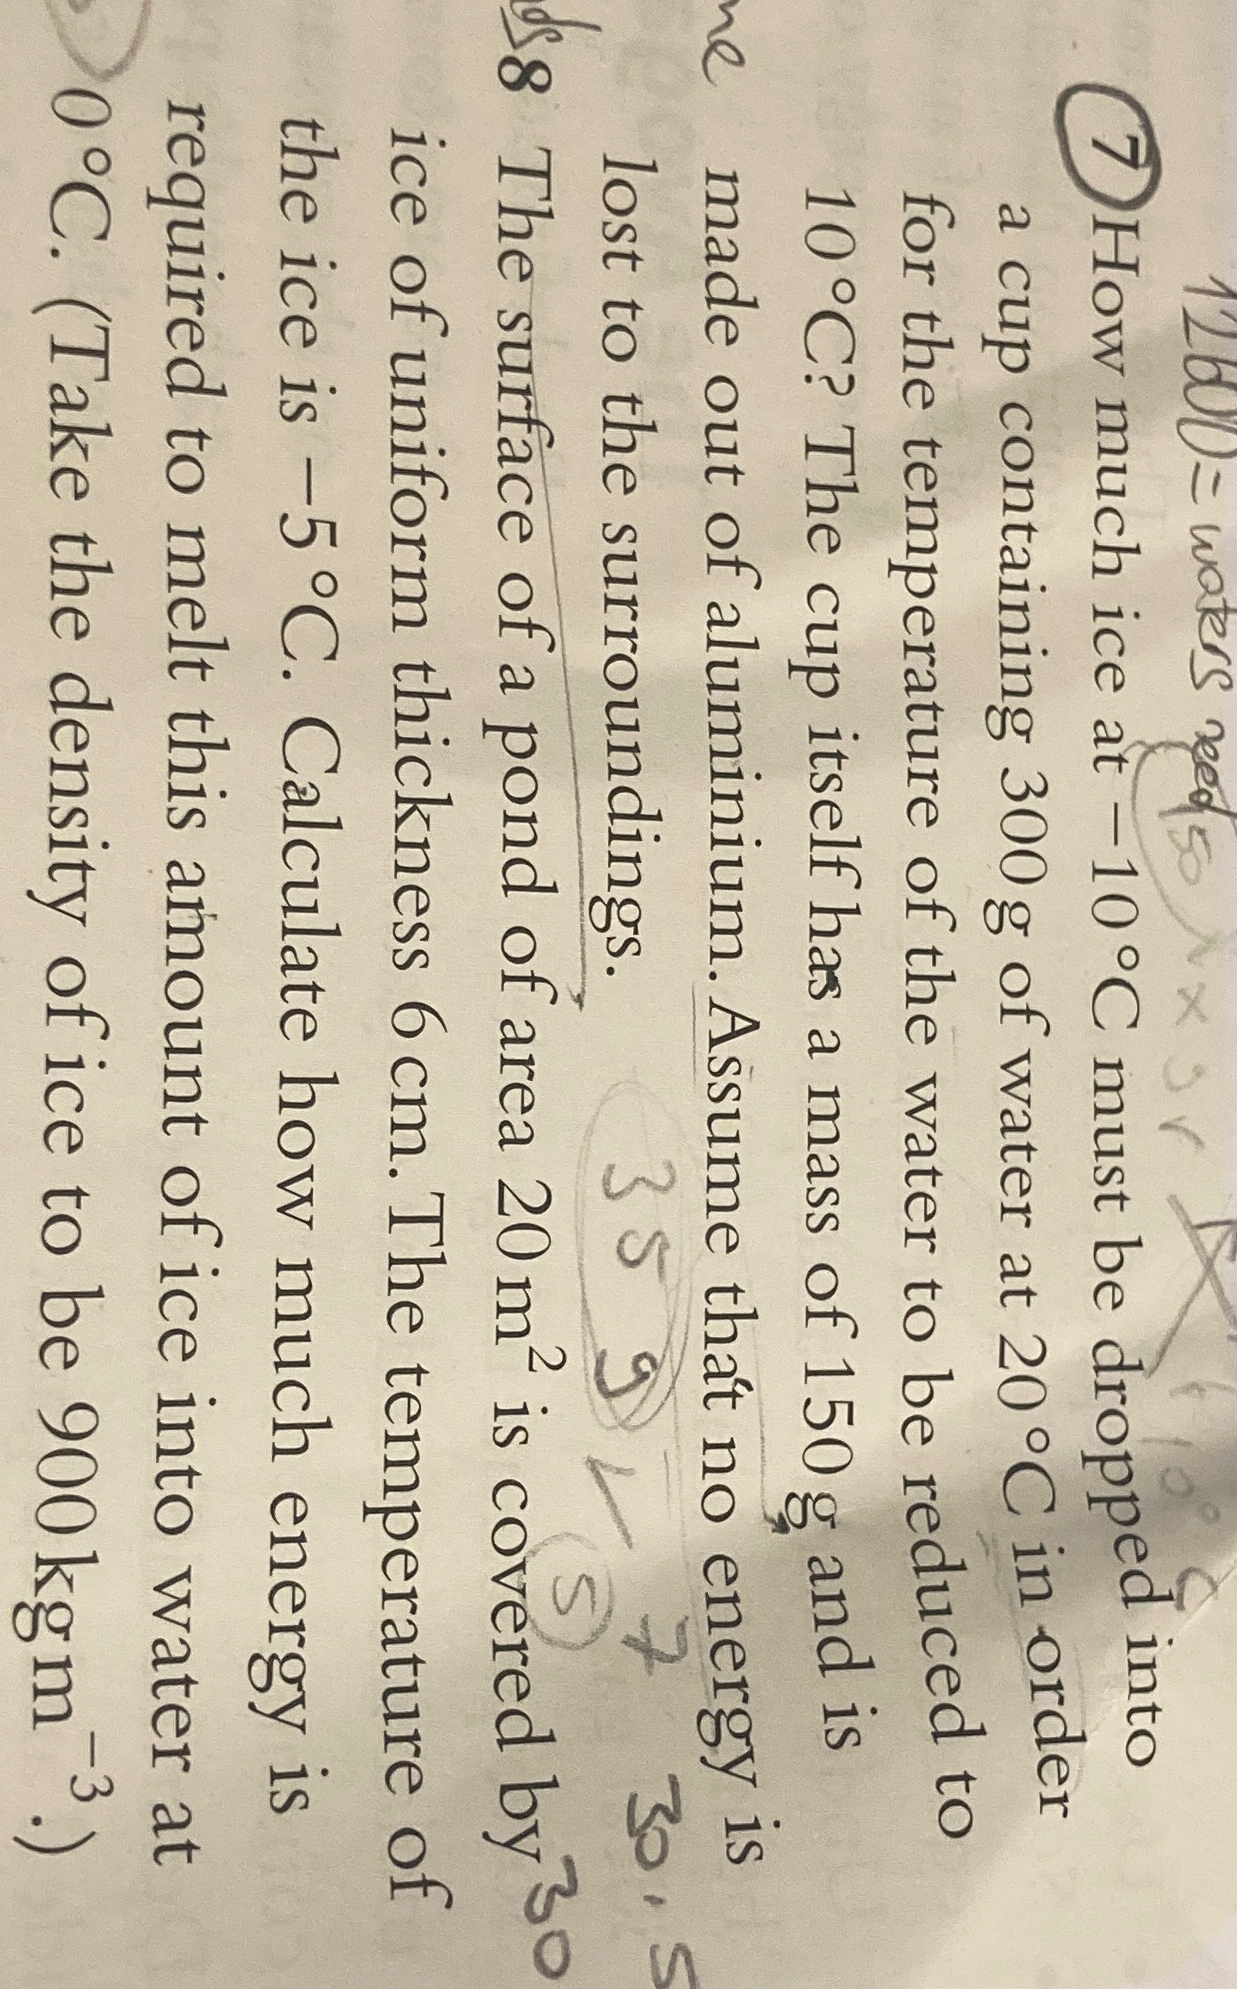 12600 = waters need
50
7 How much ice at −10 °C must be dropped into
a cup containing 300 g of water at 20 °C in order
for the temperature of the water to be reduced to
10 °C? The cup itself has a mass of 150 g and is
me made out of aluminium. Assume that no energy is
lost to the surroundings.
359 7 30.5
5
8 The surface of a pond of area 20 m² is covered by 30
ice of uniform thickness 6 cm. The temperature of
the ice is −5 °C. Calculate how much energy is
required to melt this amount of ice into water at
0 °C. (Take the density of ice to be 900 kg m⁻³.)